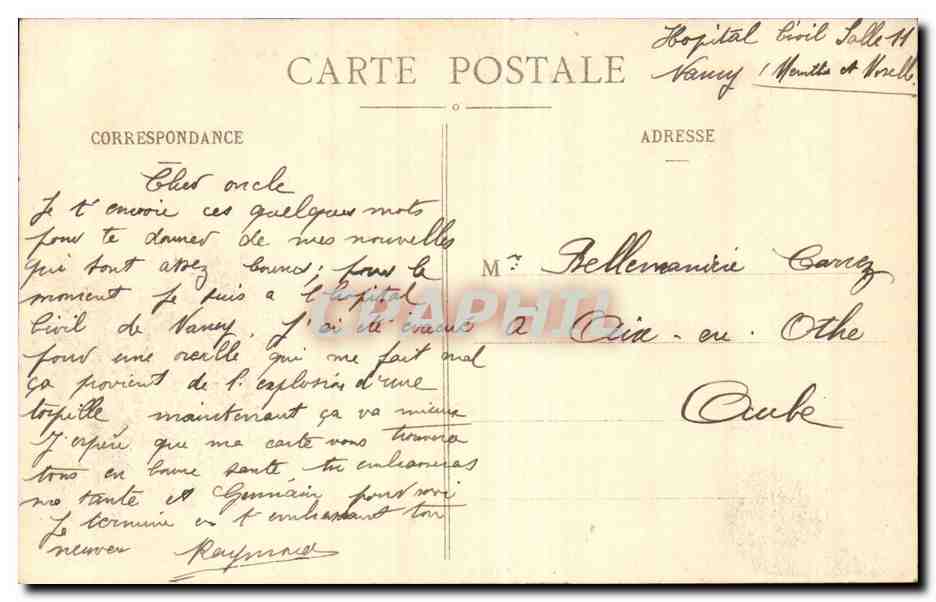 Hopital Civil Salle 11
Nancy (Meurthe et Moselle
CARTE POSTALE
CORRESPONDANCE
ADRESSE
Cher oncle
Je t'envoie ces quelques mots
pour te donner de mes nouvelles
qui sont assez bonnes; pour le
moment je suis a l'hopital
Civil de Nancy. J'ai été évacué
pour une oreille qui me fait mal
ça provient de l'explosion d'une
torpille maintenant ça va mieux
J'espère que ma carte vous trouvera
tous en bonne santé tu embrasseras
ma tante et Germain pour moi
Je termine en t'embrassant ton
neuveu Raymond
Mr. Bellemanière Carrez
a Aix-en-Othe
Aube
CPAPHIL